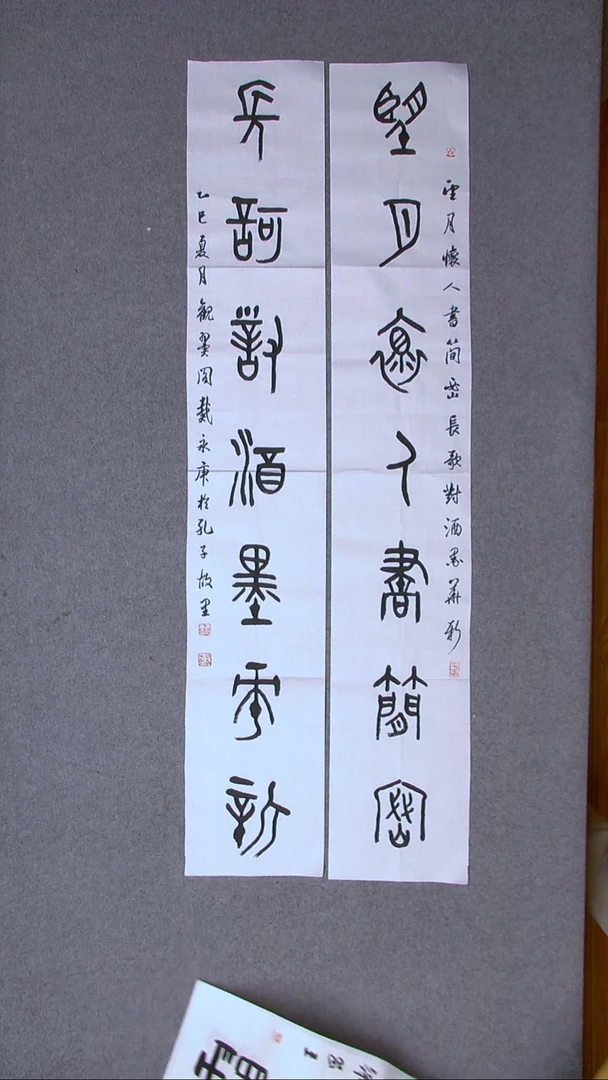 望月懷人書簡密
望月懷人書簡密長歌對酒墨華新
長歌對酒墨華新
乙巳夏月觀翼閣戴永庚於孔子故里